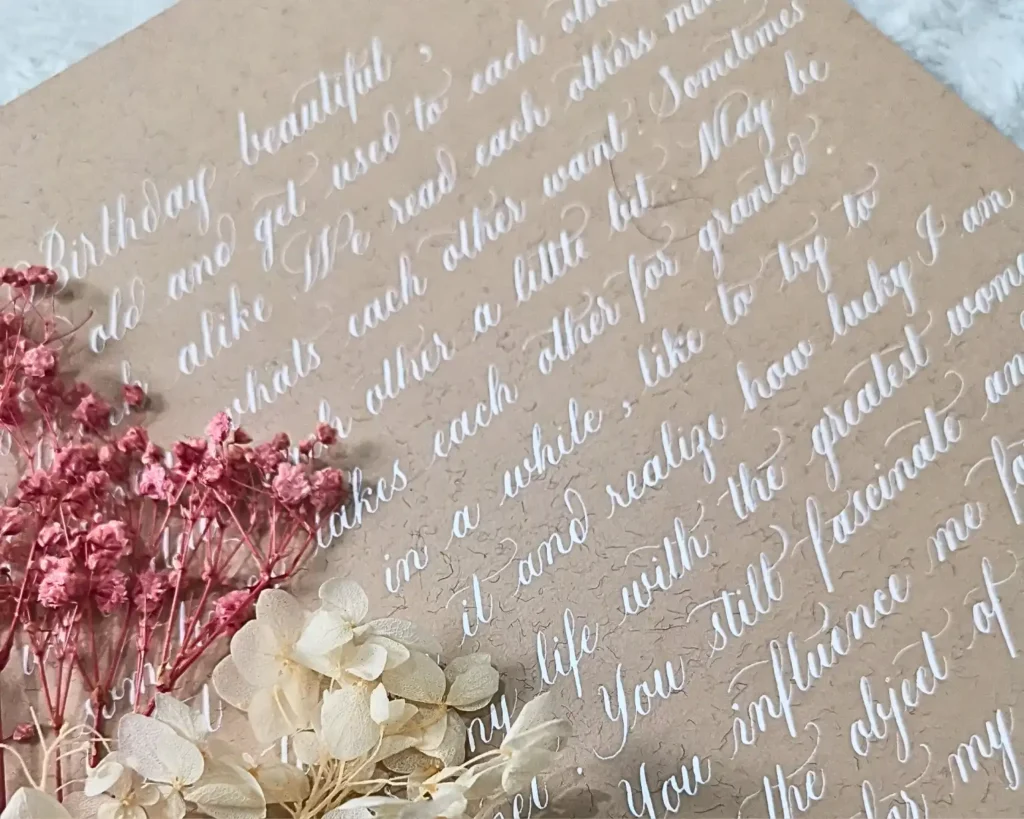 Birthday beautiful ,
old and get used to each
alike . We read each others
whats each other want . Sometimes
other a little bit . May be
each other for granted .
in a while , like to try to
it and realize how lucky I am
my life with the greatest
You still fascinate
You influence me
the object of
my